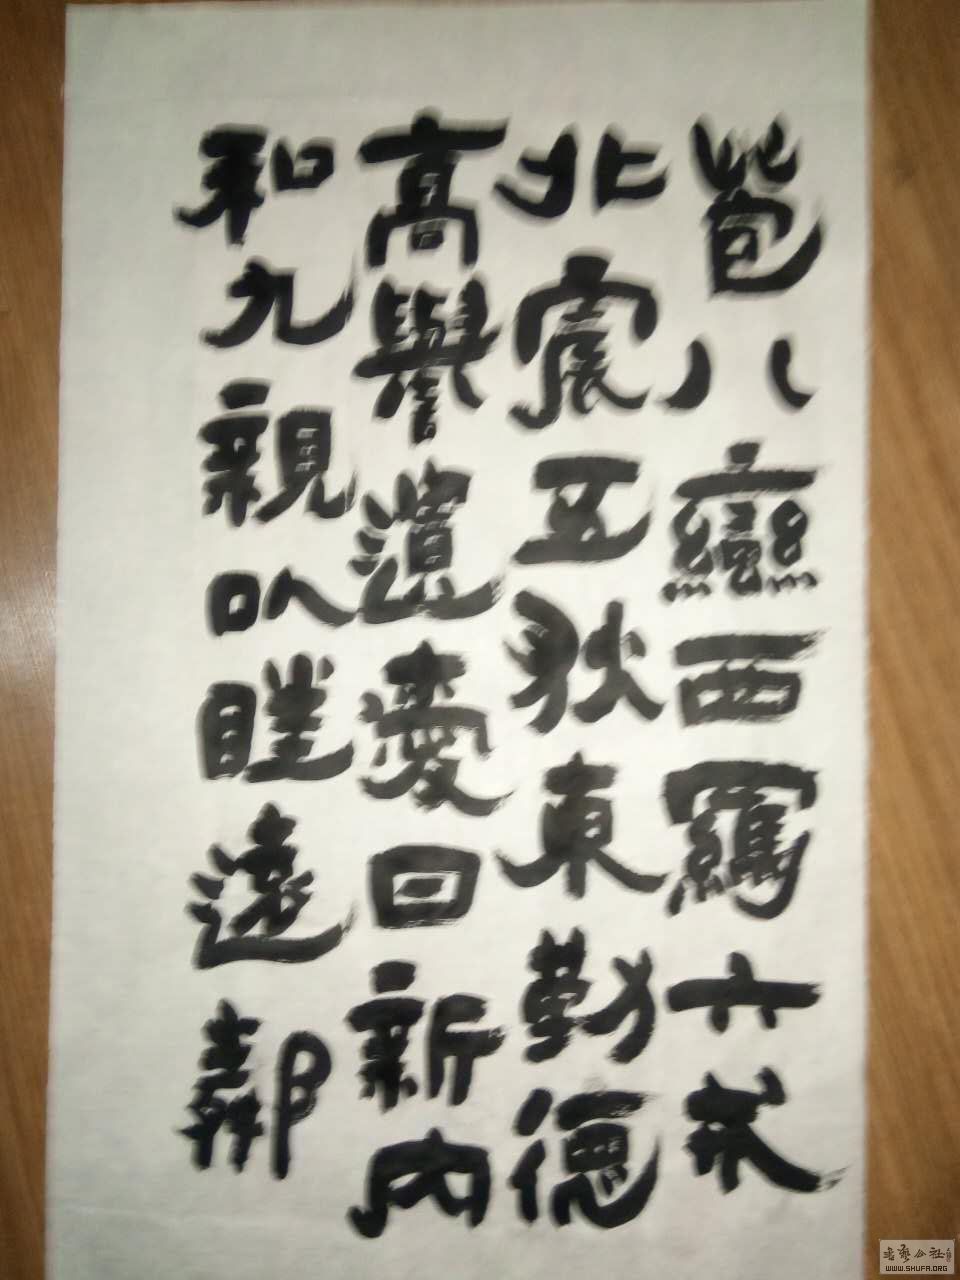 苞八蠻西羈六戎
北震五狄東勤德
高譽遺愛日新內
和九親以睦遠鄰
书艺公社
WWW.SHUFA.ORG